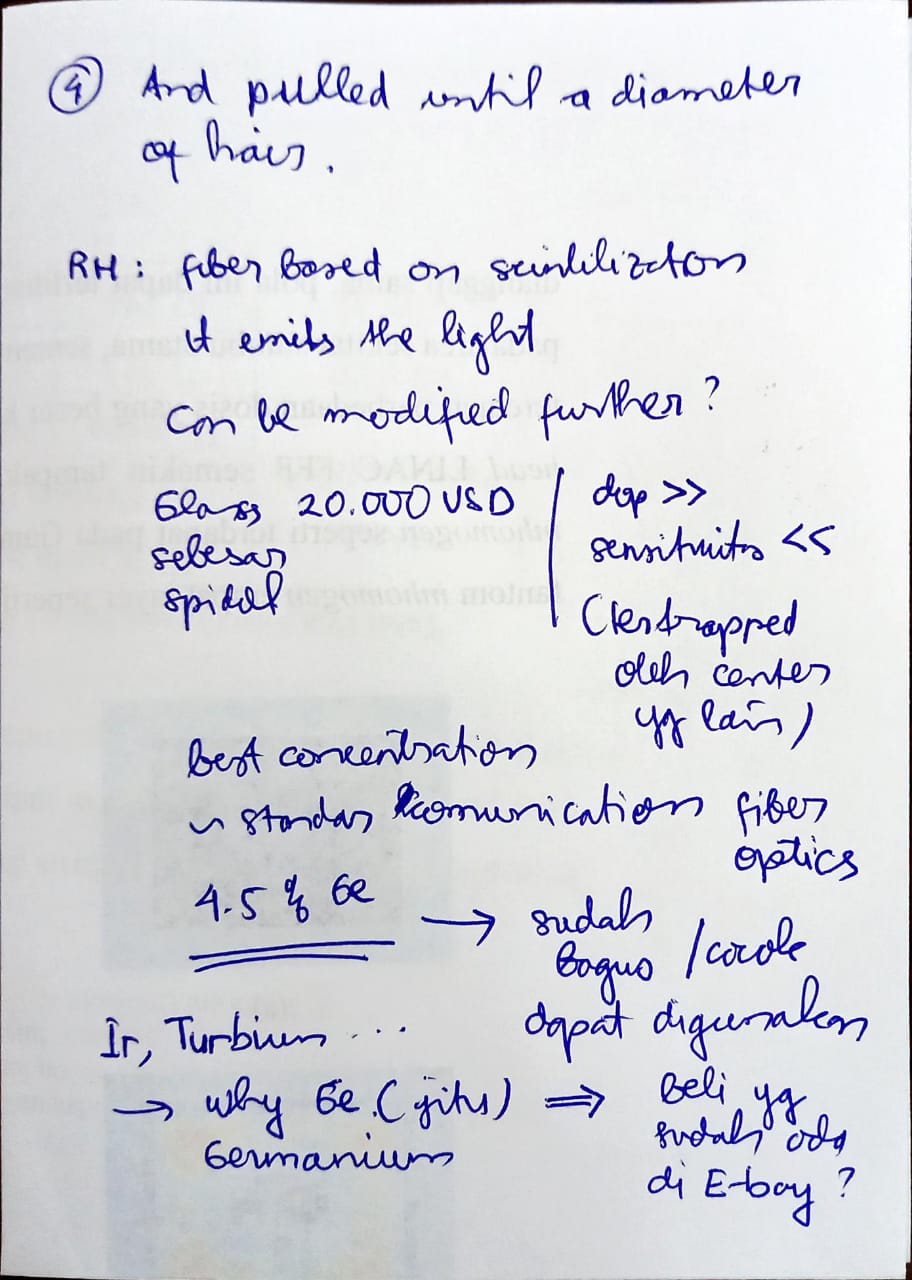 ④ And pulled until a diameter
of hair.
RH : fiber based on scintilization
it emits the light
Can be modified further?
Glass 20.000 USD
sebesar
spidol
dop >>
sensitivitas <<
(tertrapped
oleh center
yg lain)
Best concentration
in standar komunication fiber
optics
4-5 % Ge
→ sudah
bagus / cocok
dapat digunakan
Ir, Turbium ...
→ why Ge (yitu) ⇒
Germanium
Beli yg
sudah ada
di E-bay ?